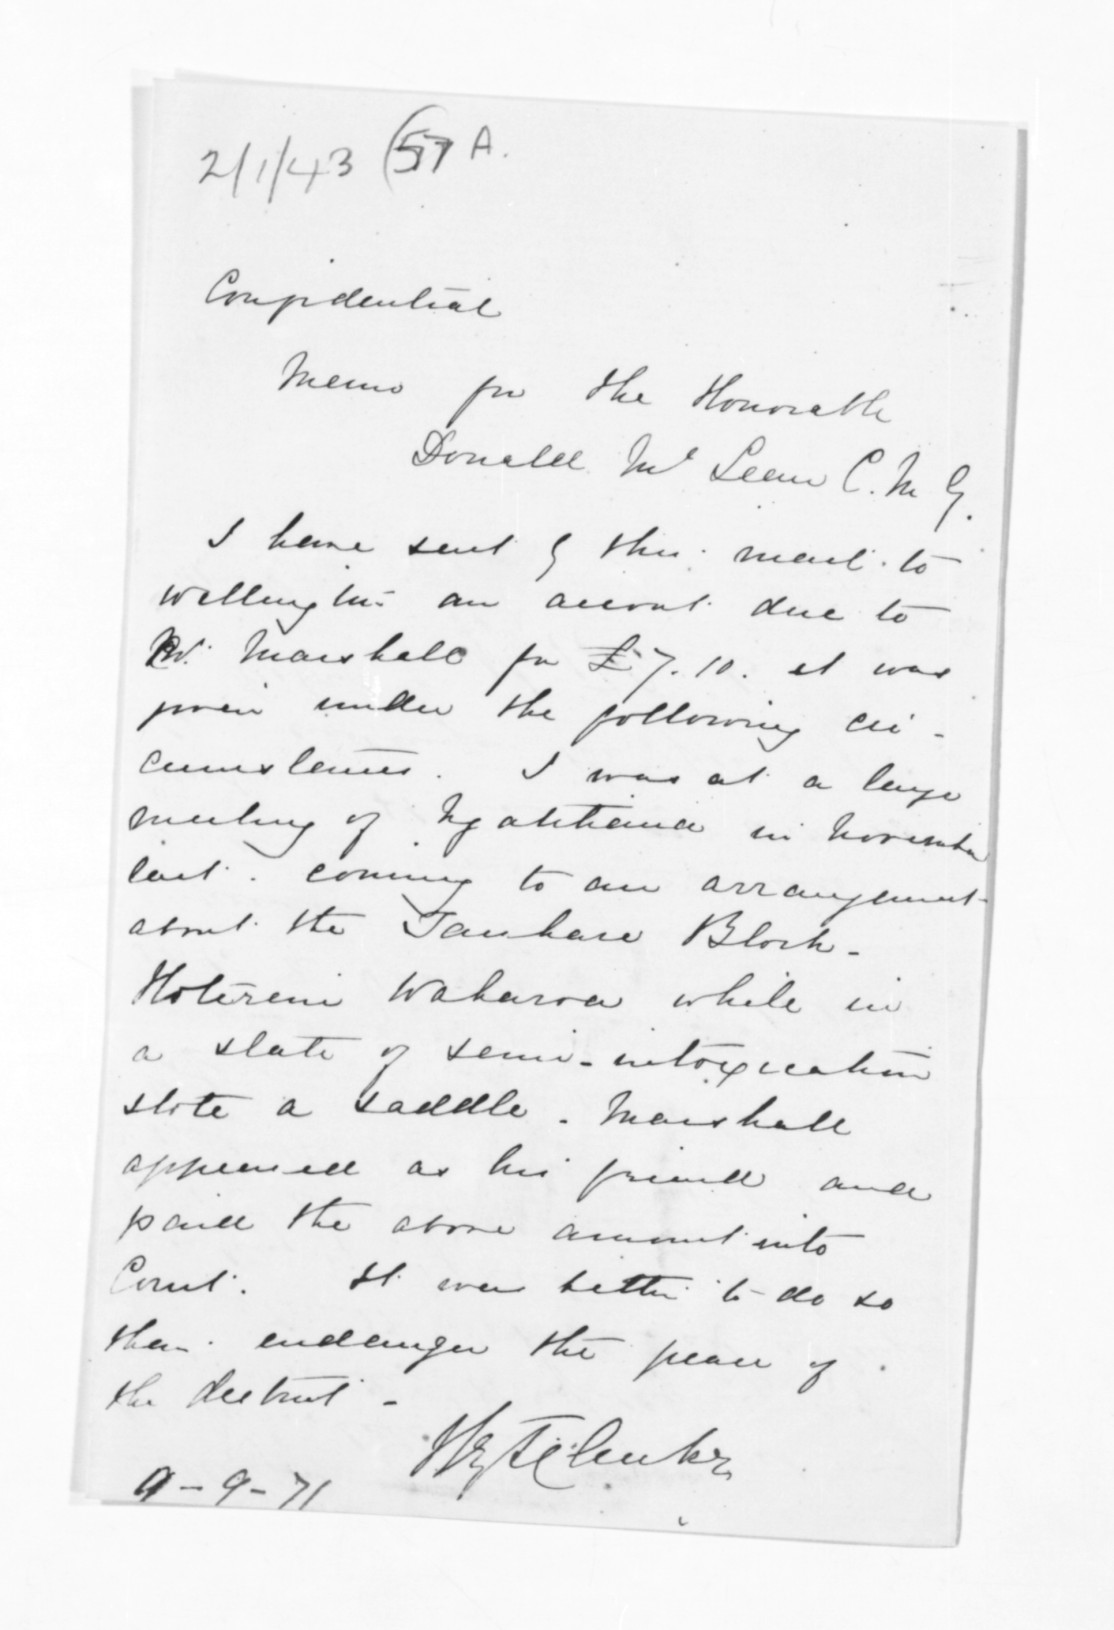 2/1/43 (57 A.
Confidential
Memo for the Honorable
Donald McLean C.M.G.
I have sent by this mail to
Wellington an account due to
W. Marshall for £7.10. it was
given under the following cir-
cumstances. I was at a large
meeting of Ngatihaua in November
last. coming to an arrangement
about the Tauhare Block -
Hotereni Waharoa while in
a state of semi-intoxication
stole a saddle. Marshall
appeared as his friend and
paid the above amount into
Court. It was better to do so
than endanger the peace of
the district -
Hy T Clarke
9-9-71